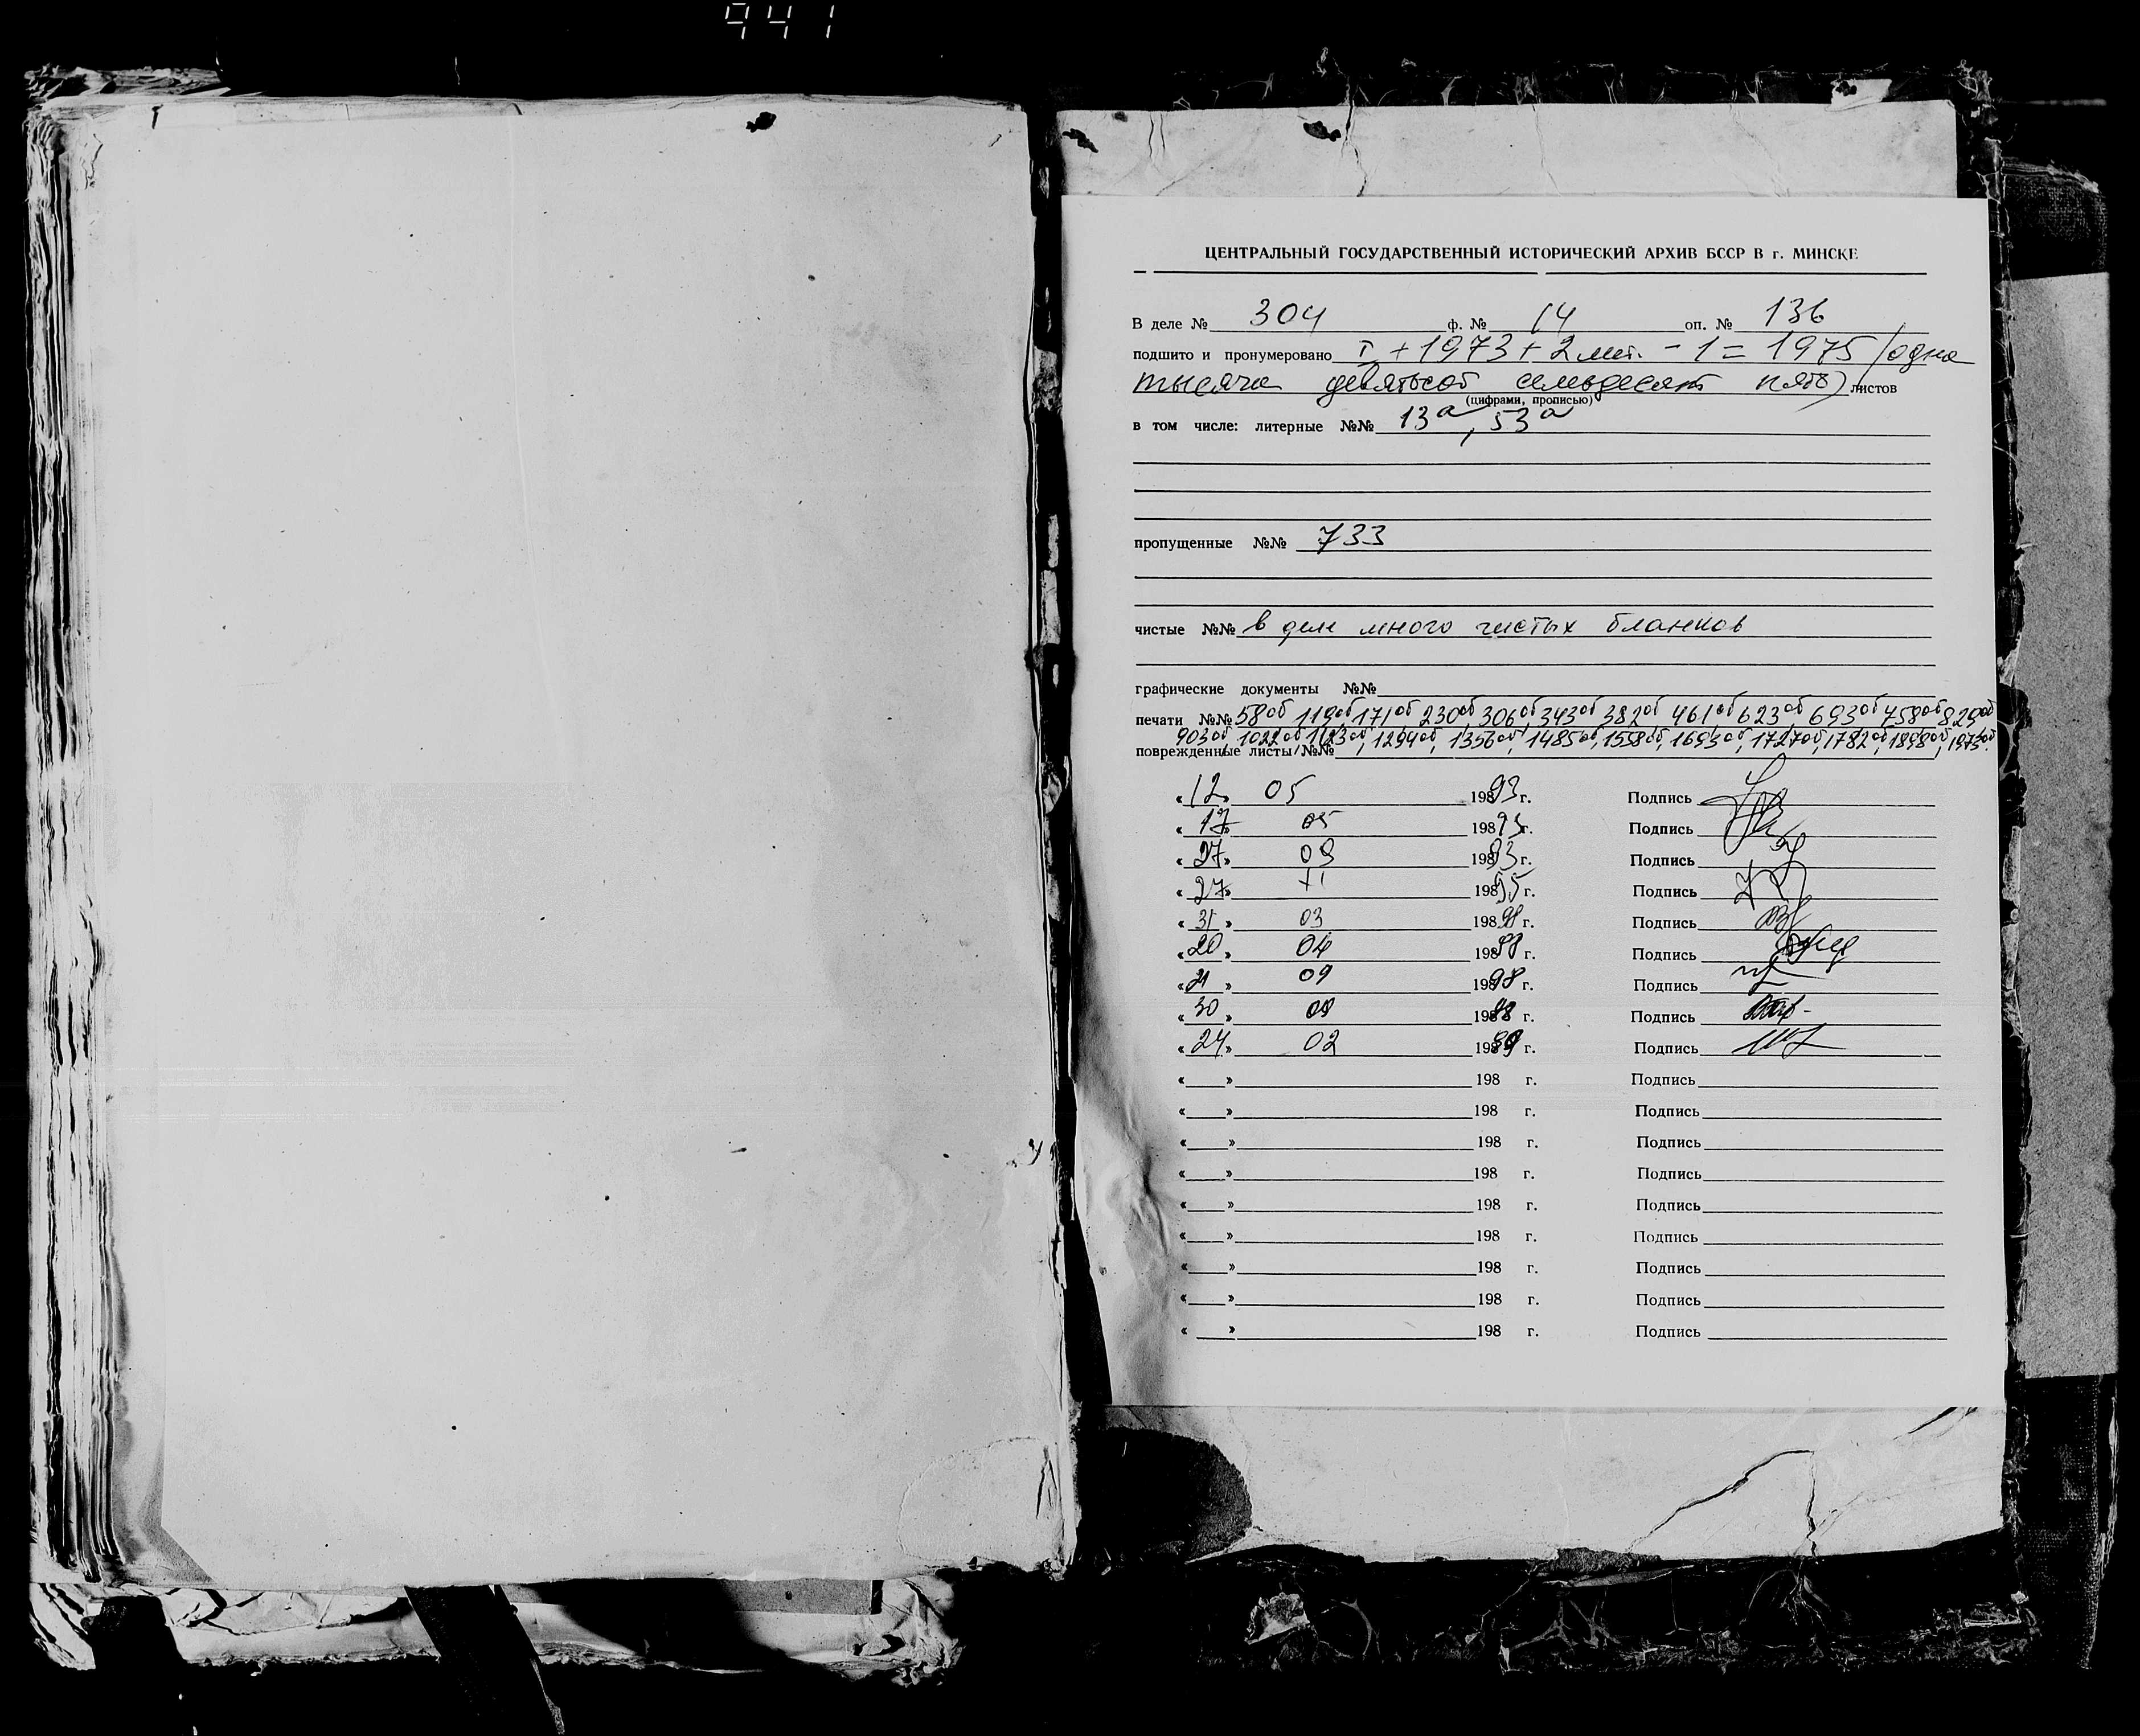 441
ЦЕНТРАЛЬНЫЙ ГОСУДАРСТВЕННЫЙ ИСТОРИЧЕСКИЙ АРХИВ БССР В г. МИНСКЕ
В деле № 304 ф. № 14 оп. № 136
подшито и пронумеровано I + 1973 + 2 лит. - 1 = 1975 (одна
тысяча девятьсот семьдесят пять) листов
(цифрами, прописью)
в том числе: литерные №№ 13а, 53а
пропущенные №№ 733
чистые №№ в деле много чистых бланков
графические документы №№
печати №№ 58об 119об, 171об, 230об, 306об, 343об, 382об, 461об, 623об, 693об, 758об, 829об
903об, 1022об, 1123об, 1294об, 1356об, 1485об, 1558об, 1693об, 1727об, 1782об, 1898об, 1973об.
поврежденные листы №№
«12» 05 198 93 г. Подпись
«17» 05 198 93 г. Подпись
«27» 09 198 93 г. Подпись
«27» XI 198 95 г. Подпись
«31» 03 198 98 г. Подпись
«20» 04 198 98 г. Подпись
«21» 09 198 98 г. Подпись
«30» 09 198 98 г. Подпись
«24» 02 198 99 г. Подпись
« » 198 г. Подпись
« » 198 г. Подпись
« » 198 г. Подпись
« » 198 г. Подпись
« » 198 г. Подпись
« » 198 г. Подпись
« » 198 г. Подпись
« » 198 г. Подпись
« » 198 г. Подпись